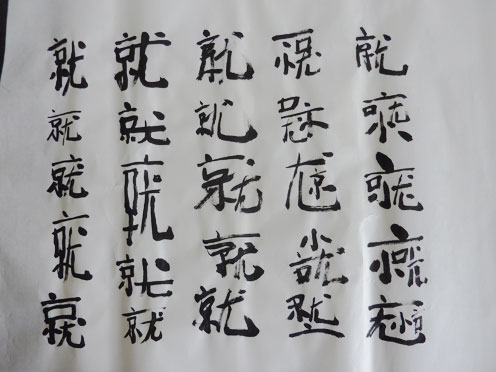 就就就就就
就就就就就
就就就就就
就就就就就
就就就就就